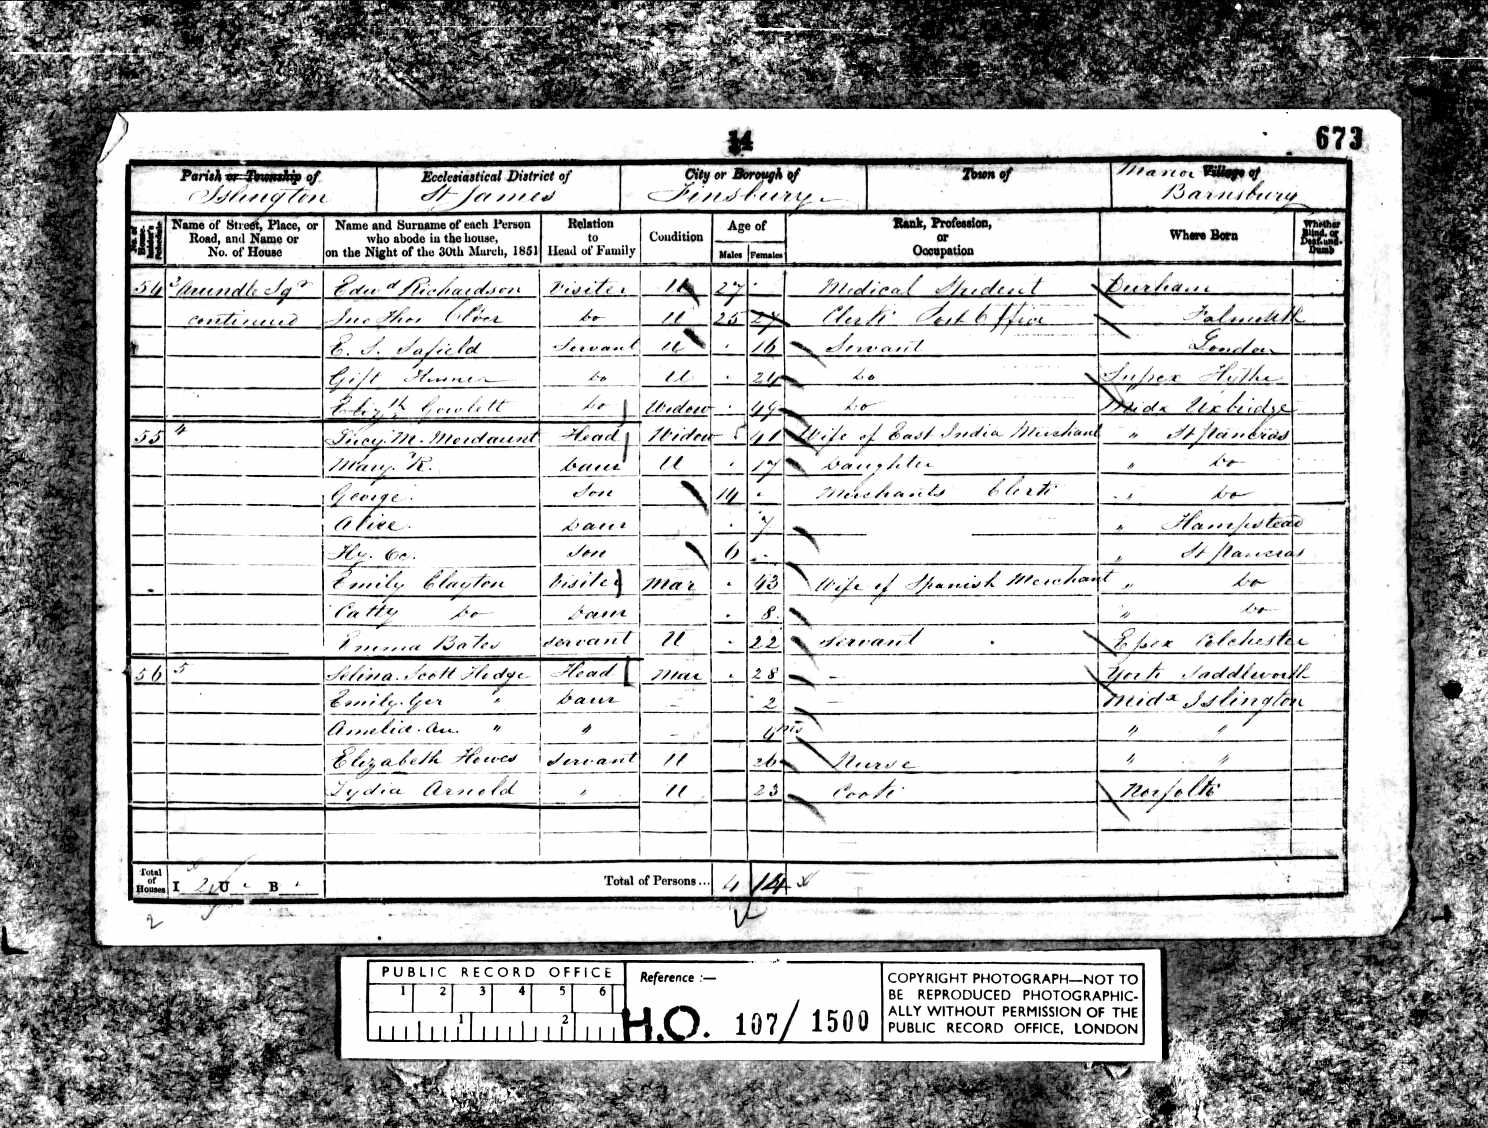 14
673
Parish or Township of
Islington
Ecclesiastical District of
St James
City or Borough of
Finsbury
Town of
Manor Village of
Barnsbury
No. of House-holder's Schedule
Name of Street, Place, or Road, and Name or No. of House
Name and Surname of each Person who abode in the house, on the Night of the 30th March, 1851
Relation to Head of Family
Condition
Age of
Males
Females
Rank, Profession, or Occupation
Where Born
Whether Blind, or Deaf-and-Dumb
54 3 Arundle Sqr Edwd Richardson Visiter U 27 Medical Student Durham
continued Jno Thos Do U 25 27 Clerk Post Office Falmouth
E. S. Safield Servant U 16 Servant London
Gift Do U 24 Do Hythe
Elizth Gowlett Do Widow 49 Do Midx Uxbridge
55 " Lucy M. Mordaunt Head Widow 41 Wife of East India Merchant " St Pancras
Mary R. Daur U 17 Daughter " Do
George. Son 14 Merchants Clerk " Do
Alice. Daur 7 " Hampstead
Hy. Son 6 " St Pancras
Emily Clayton Visiter Mar 43 Wife of Spanish Merchant " Do
Catty Do Daur 8 " Do
Emma Bates servant U 22 servant Essex Colchester
56 5 Selina Scott Hedge Head Mar 28 York Saddleworth
Emily Ger " Daur 2 Midx Islington
Amelia An. " " 4 mts " "
Elizabeth Howes servant U 26 Nurse " "
Lydia Arnold " U 23 Cook Norfolk
Total of Houses I 2 U B
Total of Persons... 4 14
2
PUBLIC RECORD OFFICE
1 2 3 4 5 6
1 2
Reference :—
H.O. 107/1500
COPYRIGHT PHOTOGRAPH—NOT TO
BE REPRODUCED PHOTOGRAPHIC-
ALLY WITHOUT PERMISSION OF THE
PUBLIC RECORD OFFICE, LONDON